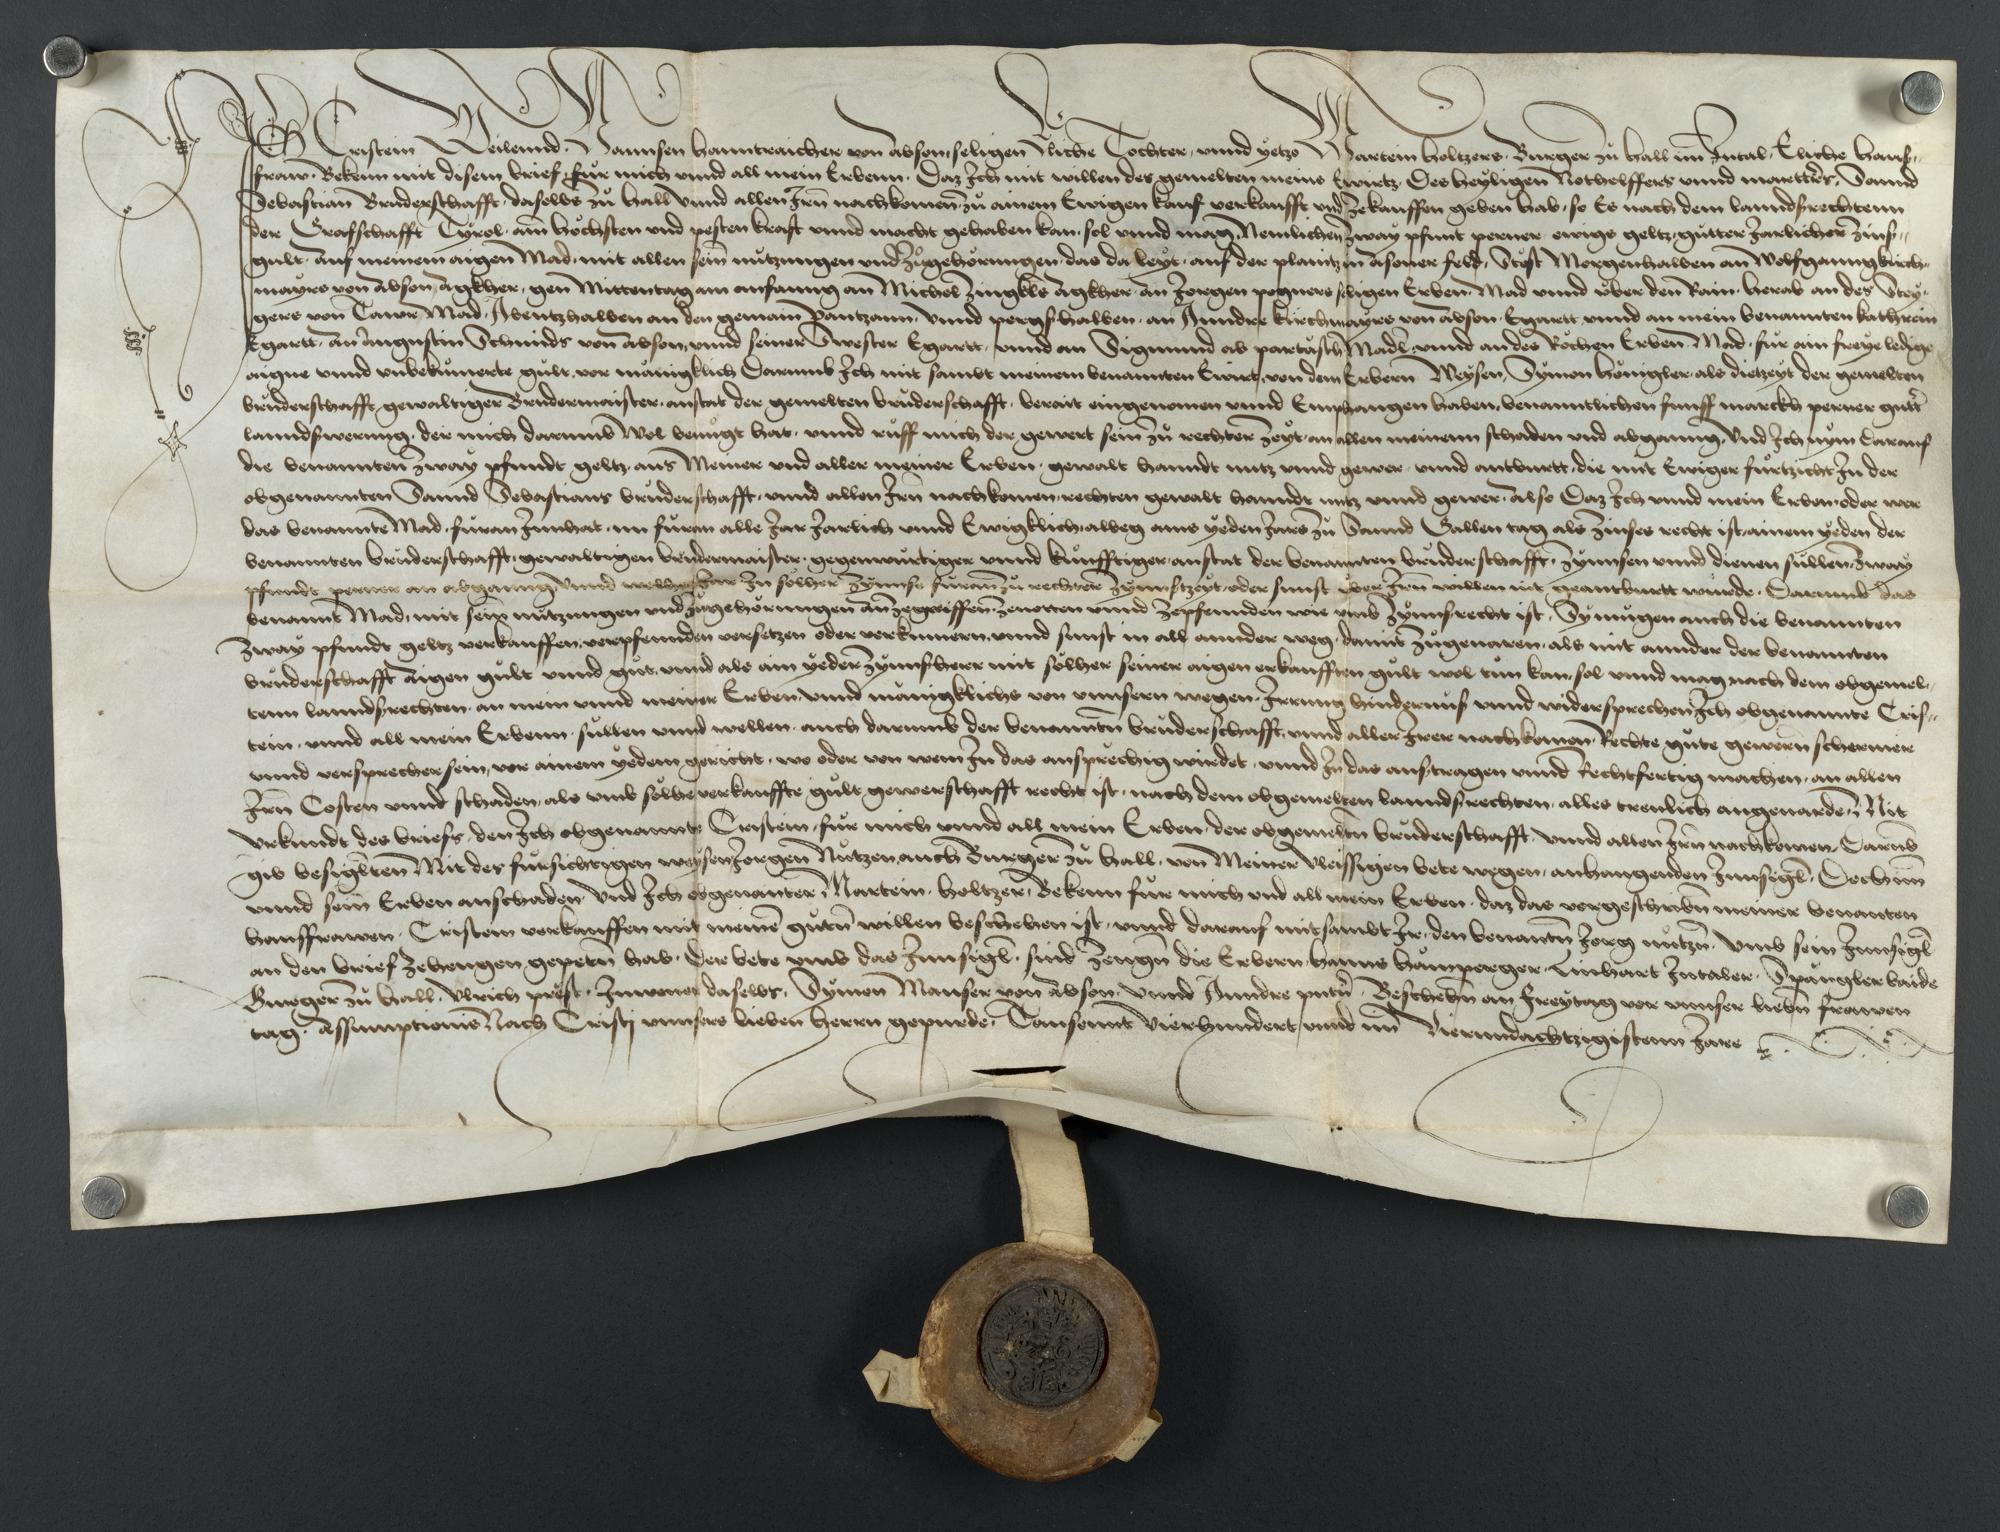 Ich Cristein Weilennd Hannsen hanntraicher von Absom seligen Eliche Tochter, vnnd yetzo Martein holtzers Burger zu hall im Intal, Eliche hauß-
fraw, Bekenn mit disem brief, für mich vnnd all mein Erbenn, Daz Ich mit willen des gemelten meins Ewirtz, Des heyligen Nothelffers vnnd martrers, Sannd
Sebastian Bruderschafft, daselbs zu hall vnnd allen Irn nachkomen, zu ainem Ewigen kauf verkaufft vnd zekauffen geben hab, so Es nach dem lanndsrechtenn
der Grafschafft Tyrol, am höchsten vnd pesten kraft vnnd macht gehaben kan, sol vnnd mag, Nemlichen zway pfunt perner ewigs geltz, gutter Järlicher zinß-
gult, auf meinem aigen Mad, mit allen sein nutzungen vnd zugehörungen, das da leyt, auf der plaintz in Absomer feld, Stost Morgenhalben an Wolfganng kirch-
mayrs von Absom Agkher, gen Mittentag am anfanng an Michel Zingkls Agkher, an Jorgen pogners seligen Erben Mad vnnd über den Rain herab an des Stey-
gers von Tawr Mad, Abentzhalben an den gemain Panntzaun, vnnd pergshalben, an Anndre kirchmayrs von Absom Egartt, vnnd an mein benannten kathrein
Egartt, an Augustin Schmids von Absom, vnnd seiner Swester Egartt, vnnd an Sigmund ab partäsch Mädl, vnnd an des Röchen Erben Mad, für ain freye ledige
aigne vnnd vnbekumerte gült, vor mäniglich Darumb Ich mit sambt meinem benannten Ewirt, von dem Erbern Weysen, Symon königler, als dietzeyt der gemelten
bruderschafft gewaltiger Brudermaister, anstat der gemelten bruderschafft, berait eingenomen vnnd Emphangen haben, benanntlichen funff marckh perner gutter
lanndswerung, der mich darumb Wol benügt hat, vnnd rüff mich der gewert sein zu rechter zeyt, an allen meinenn schaden vnd abganng, Vnd Ich nym darauf
die benannten zway pfundt geltz, aus Meiner vnd aller meiner Erben, gewalt hanndt nutz vnnd gewer, vnnd antwurtt, die mit Ewiger fürtzicht In der
obgenannten Sannd Sebastians bruderschafft, vnnd allen Irn nachkomen, rechten gewalt hanndt nutz vnnd gewer, also Daz Ich vnnd mein Erben, oder wer
das benannte Mad, füran Innhat, nu füran alle Jar Järlich vnnd Ewigklich, alweg ains yeden Jars zu Sannd Gallen tag als Zinses recht ist, ainem yeden der
benannten bruderschafft, gewaltigen brudermaister, gegenwürtiger vnnd künfftiger, anstat der benannten bruderschafft, zynnsen vnnd dienen süllen, zway
pfundt perner an abganng, Vnnd welhes Jar In sölher Zynns füran zu rechter Zynnßzeyt, oder sunst über Irn willen nit geantwurtt würde, Darumb das
benannt Mad, mit sein nutzungen vnd zugehörungen anzegreiffen, zenotten vnnd zepfennden wie vmb Zynnsrecht ist, Sy mügen auch die benannten
zway pfundt geltz verkauffen, verpfennden versetzen oder verkümern, vnnd sunst in all annder weg, damit zugenaren, als mit annder der benannten
bruderschafft aigen gült vnnd gut, vnnd als ain yeder Zynnsherr mit sölher seiner aigen erkaufften gült wol tun kan, sol vnnd mag nach dem obgemel-
tenn lanndsrechten, an mein vnnd meiner Erben, vnnd mänigklichs von vnnsern wegen, Irrung hindernuß vnnd widersprechen, Ich obgenannte Cris-
tein, vnnd all mein Erbenn, süllen vnnd wellen, auch darumb der benannten bruderschafft, vnnd aller Irer nachkomen, Rechte gute gewern schermer
vnnd versprecher sein, vor ainem yedem gericht, wo oder von wem In das ansprechig wirdet, vnnd In das austragen vnnd Rechtfertig machen, an allen
Irn Costen vnnd schaden, als vmb sölhe verkauffte gült gewerschafft recht ist, nach dem obgemelten lanndsrechten, alles treulich angeuarde, Mit
Vrkundt des briefs, den Ich obgenannte Cristein, für mich vnnd all mein Erben, der obgemelten bruderschafft, vnnd allen Irn nachkomen, Darumb
gib besiglten Mit des fürsichtigen weysen Jorgen Nützen, auch Burger zu hall, von Meiner vleissigen bete wegen, anhangenden Innsigl, Doch im
vnnd sein Erben anschaden, Vnd Ich obgenanter Martein holtzer, Bekenn für mich vnd all mein Erben, daz das vorgeschriben meiner benanten
hausfrawen Cristein verkauffen mit meinem gutem willen beschehen ist, vnnd darauf mitsambt Ir, den benantn Jorg nützn, Vmb sein Innsigl
an den brief zehengen gepeten hab, Der bete vmb das Innsigl, sind zeugn die Erbern, hanns hämperger, Linhart Intaler, Spängler baide
Burger zu hall, Vlrich prest, Inwoner daselbs, Symon Mauser von Absom vnnd Anndre Beschehn an freytag vor vnnser lieben frawen
tag Assumptionis Nach Cristj vnnsers lieben herrn gepurde, Tausennt Vierhundert vnnd im Vierundachtzigistenn Jare